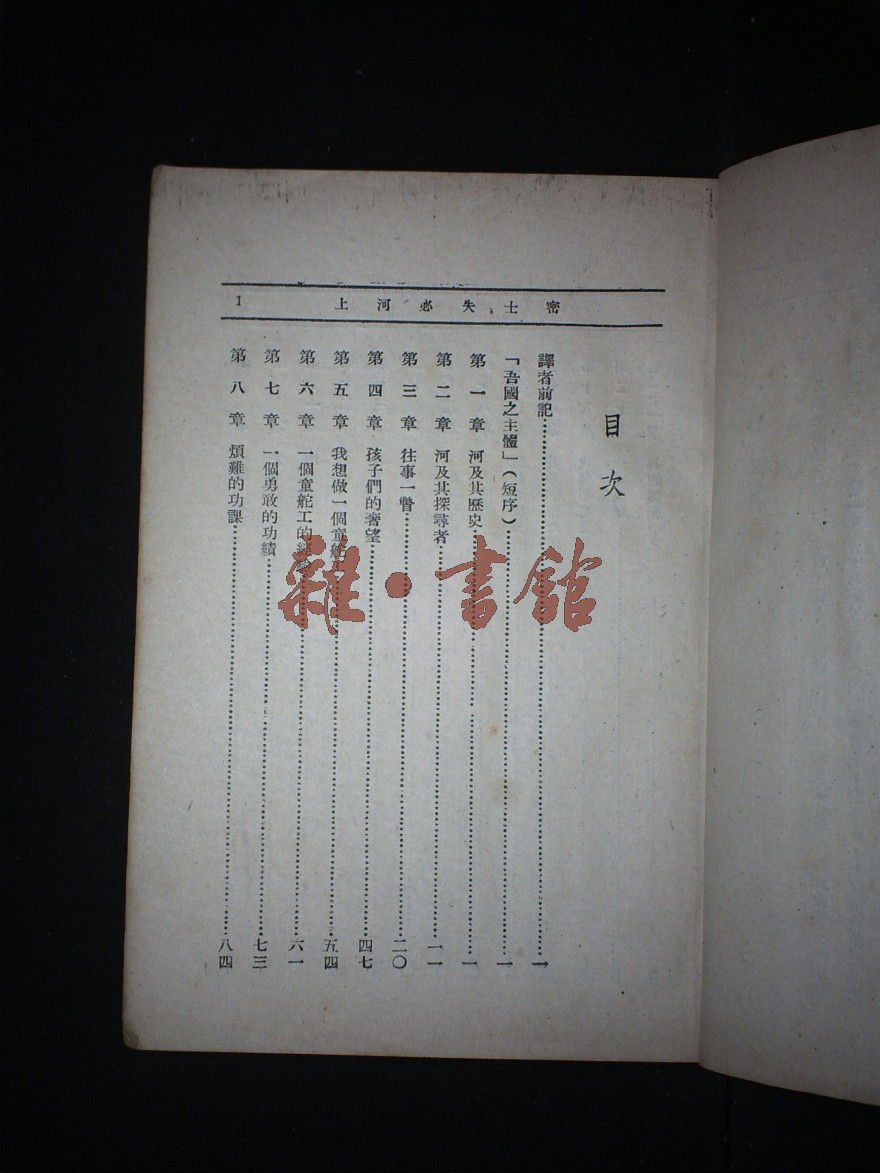 密士失必河上 1
目次
譯者前記…………一
「吾國之主體」(短序)…………一
第一章 河及其歷史…………一
第二章 河及其探尋者…………一一
第三章 往事一瞥…………二〇
第四章 孩子們的奢望…………四七
第五章 我想做一個童舵工…………五四
第六章 一個童舵工的…………六一
第七章 一個勇敢的功績…………七三
第八章 煩難的功課…………八四
雜·書館